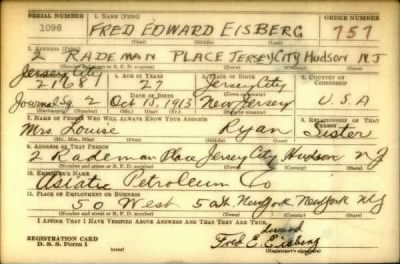 SERIAL NUMBER 1. NAME (Print) ORDER NUMBER
1096 FRED EDWARD EISBERG 757
(First) (Middle) (Last)
2. ADDRESS (Print)
2 RADEMAN PLACE JERSEY CITY HUDSON N J
(Number and street or R. F. D. number) (Town) (County) (State)
3. TELEPHONE 4. AGE IN YEARS 5. PLACE OF BIRTH 6. COUNTRY OF CITIZENSHIP
Jersey City
27 Jersey City
DATE OF BIRTH (Town or county)
2 Oct 15, 1913 New Jersey U.S.A
(Exchange) (Number) (Mo.) (Day) (Yr.) (State or country)
7. NAME OF PERSON WHO WILL ALWAYS KNOW YOUR ADDRESS 8. RELATIONSHIP OF THAT PERSON
Mrs. Louise Ryan Sister
(Mr., Mrs., Miss) (First) (Middle) (Last)
9. ADDRESS OF THAT PERSON
2 Rademan Place Jersey City Hudson NJ
(Number and street or R. F. D. number) (Town) (County) (State)
10. EMPLOYER'S NAME
Asiatic Petroleum Co
11. PLACE OF EMPLOYMENT OR BUSINESS
50 West 50th. New York New York NY
(Number and street or R. F. D. number) (Town) (County) (State)
I AFFIRM THAT I HAVE VERIFIED ABOVE ANSWERS AND THAT THEY ARE TRUE.
REGISTRATION CARD
D. S. S. Form 1
Edward
Fred E. Eisberg
(Registrant's signature)